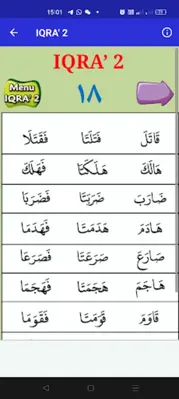 15:01
IQRA' 2
IQRA' 2
Menu
IQRA' 2
١٨
قَاتَلَ قَتَلَتَا فَقَتَلَا
هَالَكَ هَلَكَتَا فَهَلَكَ
ضَارَبَ ضَرَبَتَا فَضَرَبَا
هَادَمَ هَدَمَتَا فَهَدَمَا
صَارَعَ صَرَعَتَا فَصَرَعَا
هَاجَمَ هَجَمَتَا فَهَجَمَا
قَاوَمَ قَوَمَتَا فَقَوَمَا